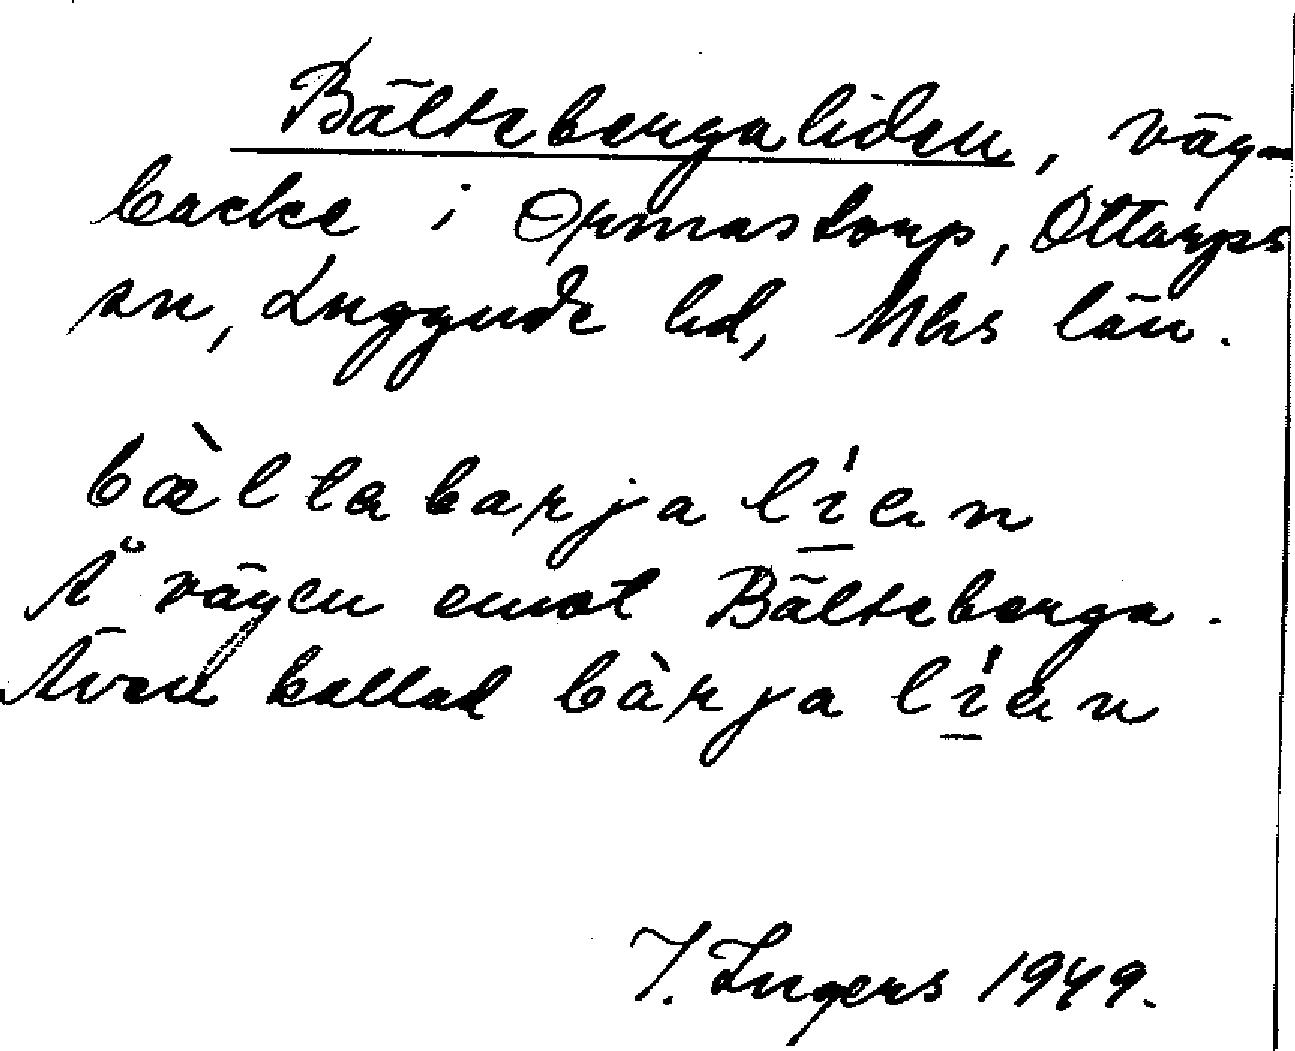 Bältebergaliden, väg-
backe i Ormastorp, Ottarps
sn, Luggude hd, Mhs län.
bæ̀ltabarja líən
Å vägen emot Bälteberga.
Även kallad bàrja líən
I. Ingers 1949.